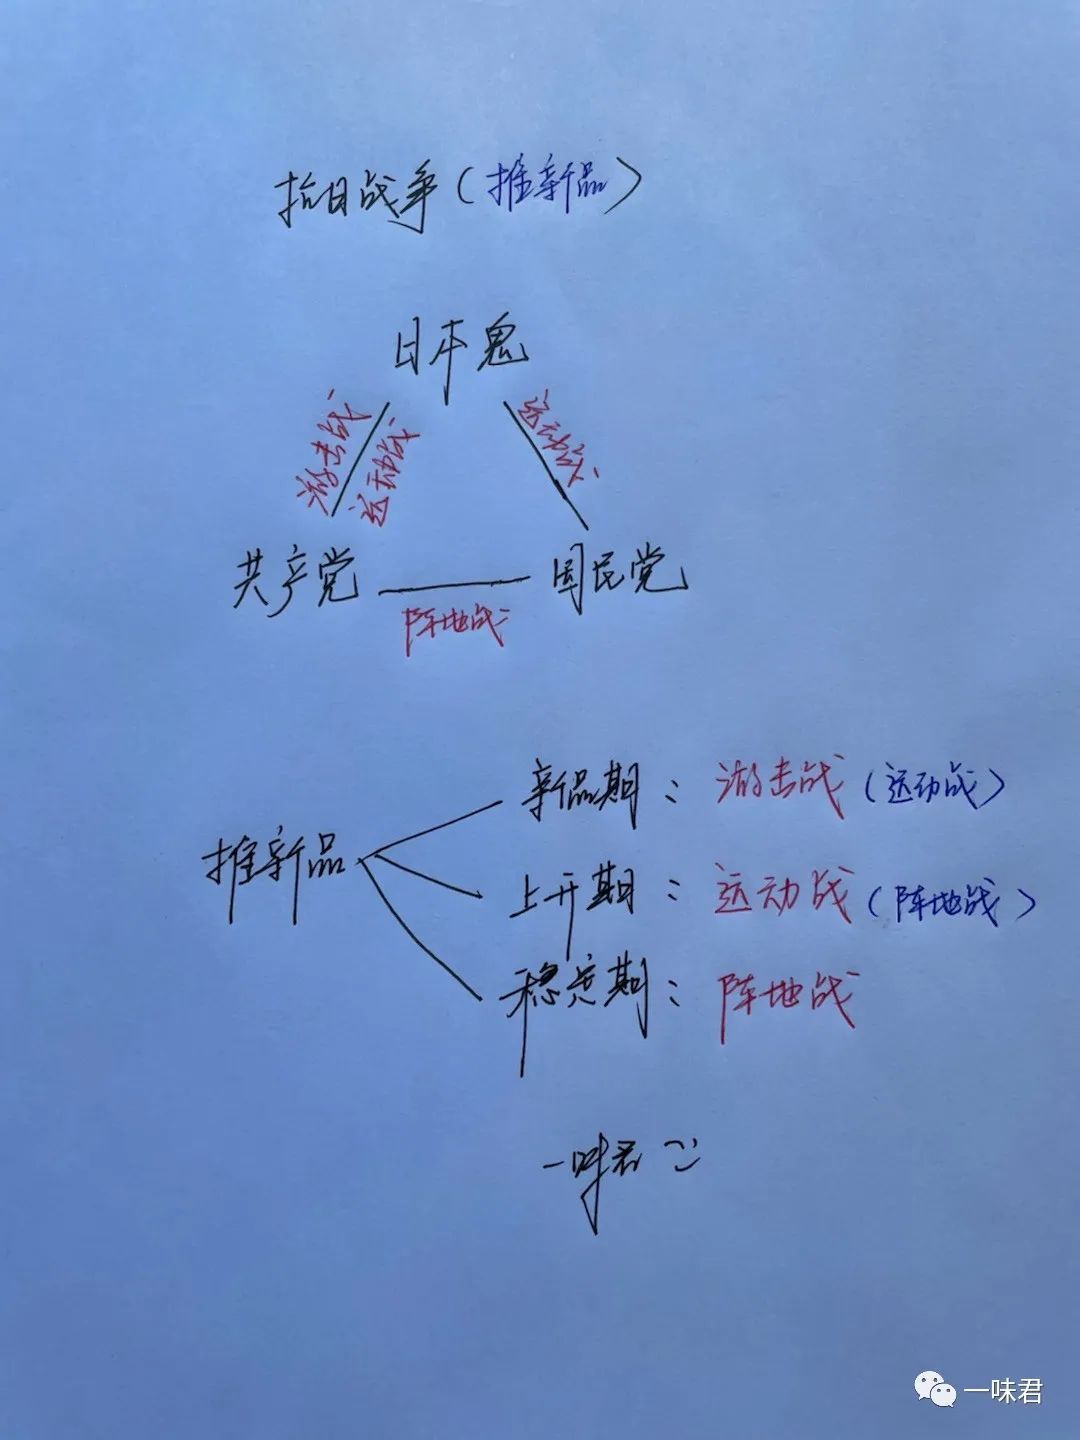 抗日战争（推新品）
日本鬼
游击战
运动战
运动战
共产党
国民党
阵地战
推新品
新品期：游击战（运动战）
上升期：运动战（阵地战）
稳定期：阵地战
一味君
一味君